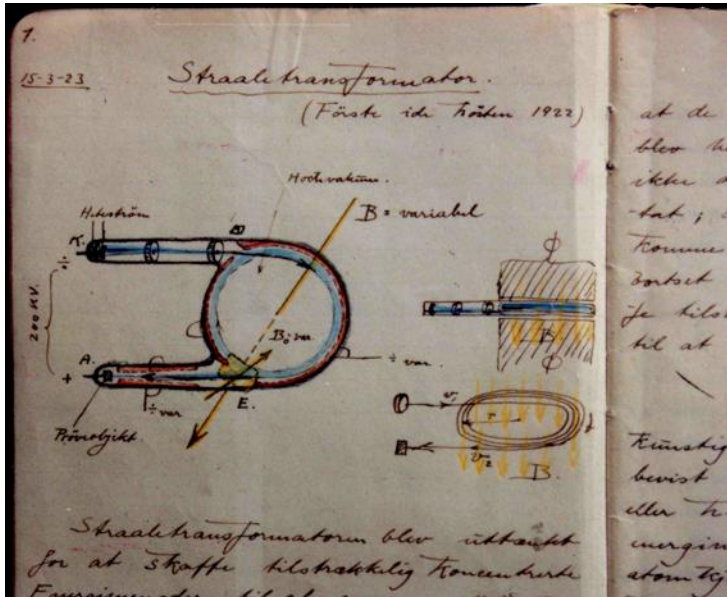 1.
15-3-23
Straaletransformator.
(Förste ide hösten 1922)
Hochvakuum.
B = variabel
Heteström
K.
÷
200 KV.
÷ var.
A.
+
E.
÷ var
Pröveobjekt
Φ
B
Φ
v₁
r
v₂
B
Straaletransformatoren blev uttænkt
for at skaffe tilstrækkelig koncentrerte
at de
blev
ikke
tat;
komme
bortset
je
til at
kunstig
bevist
eller